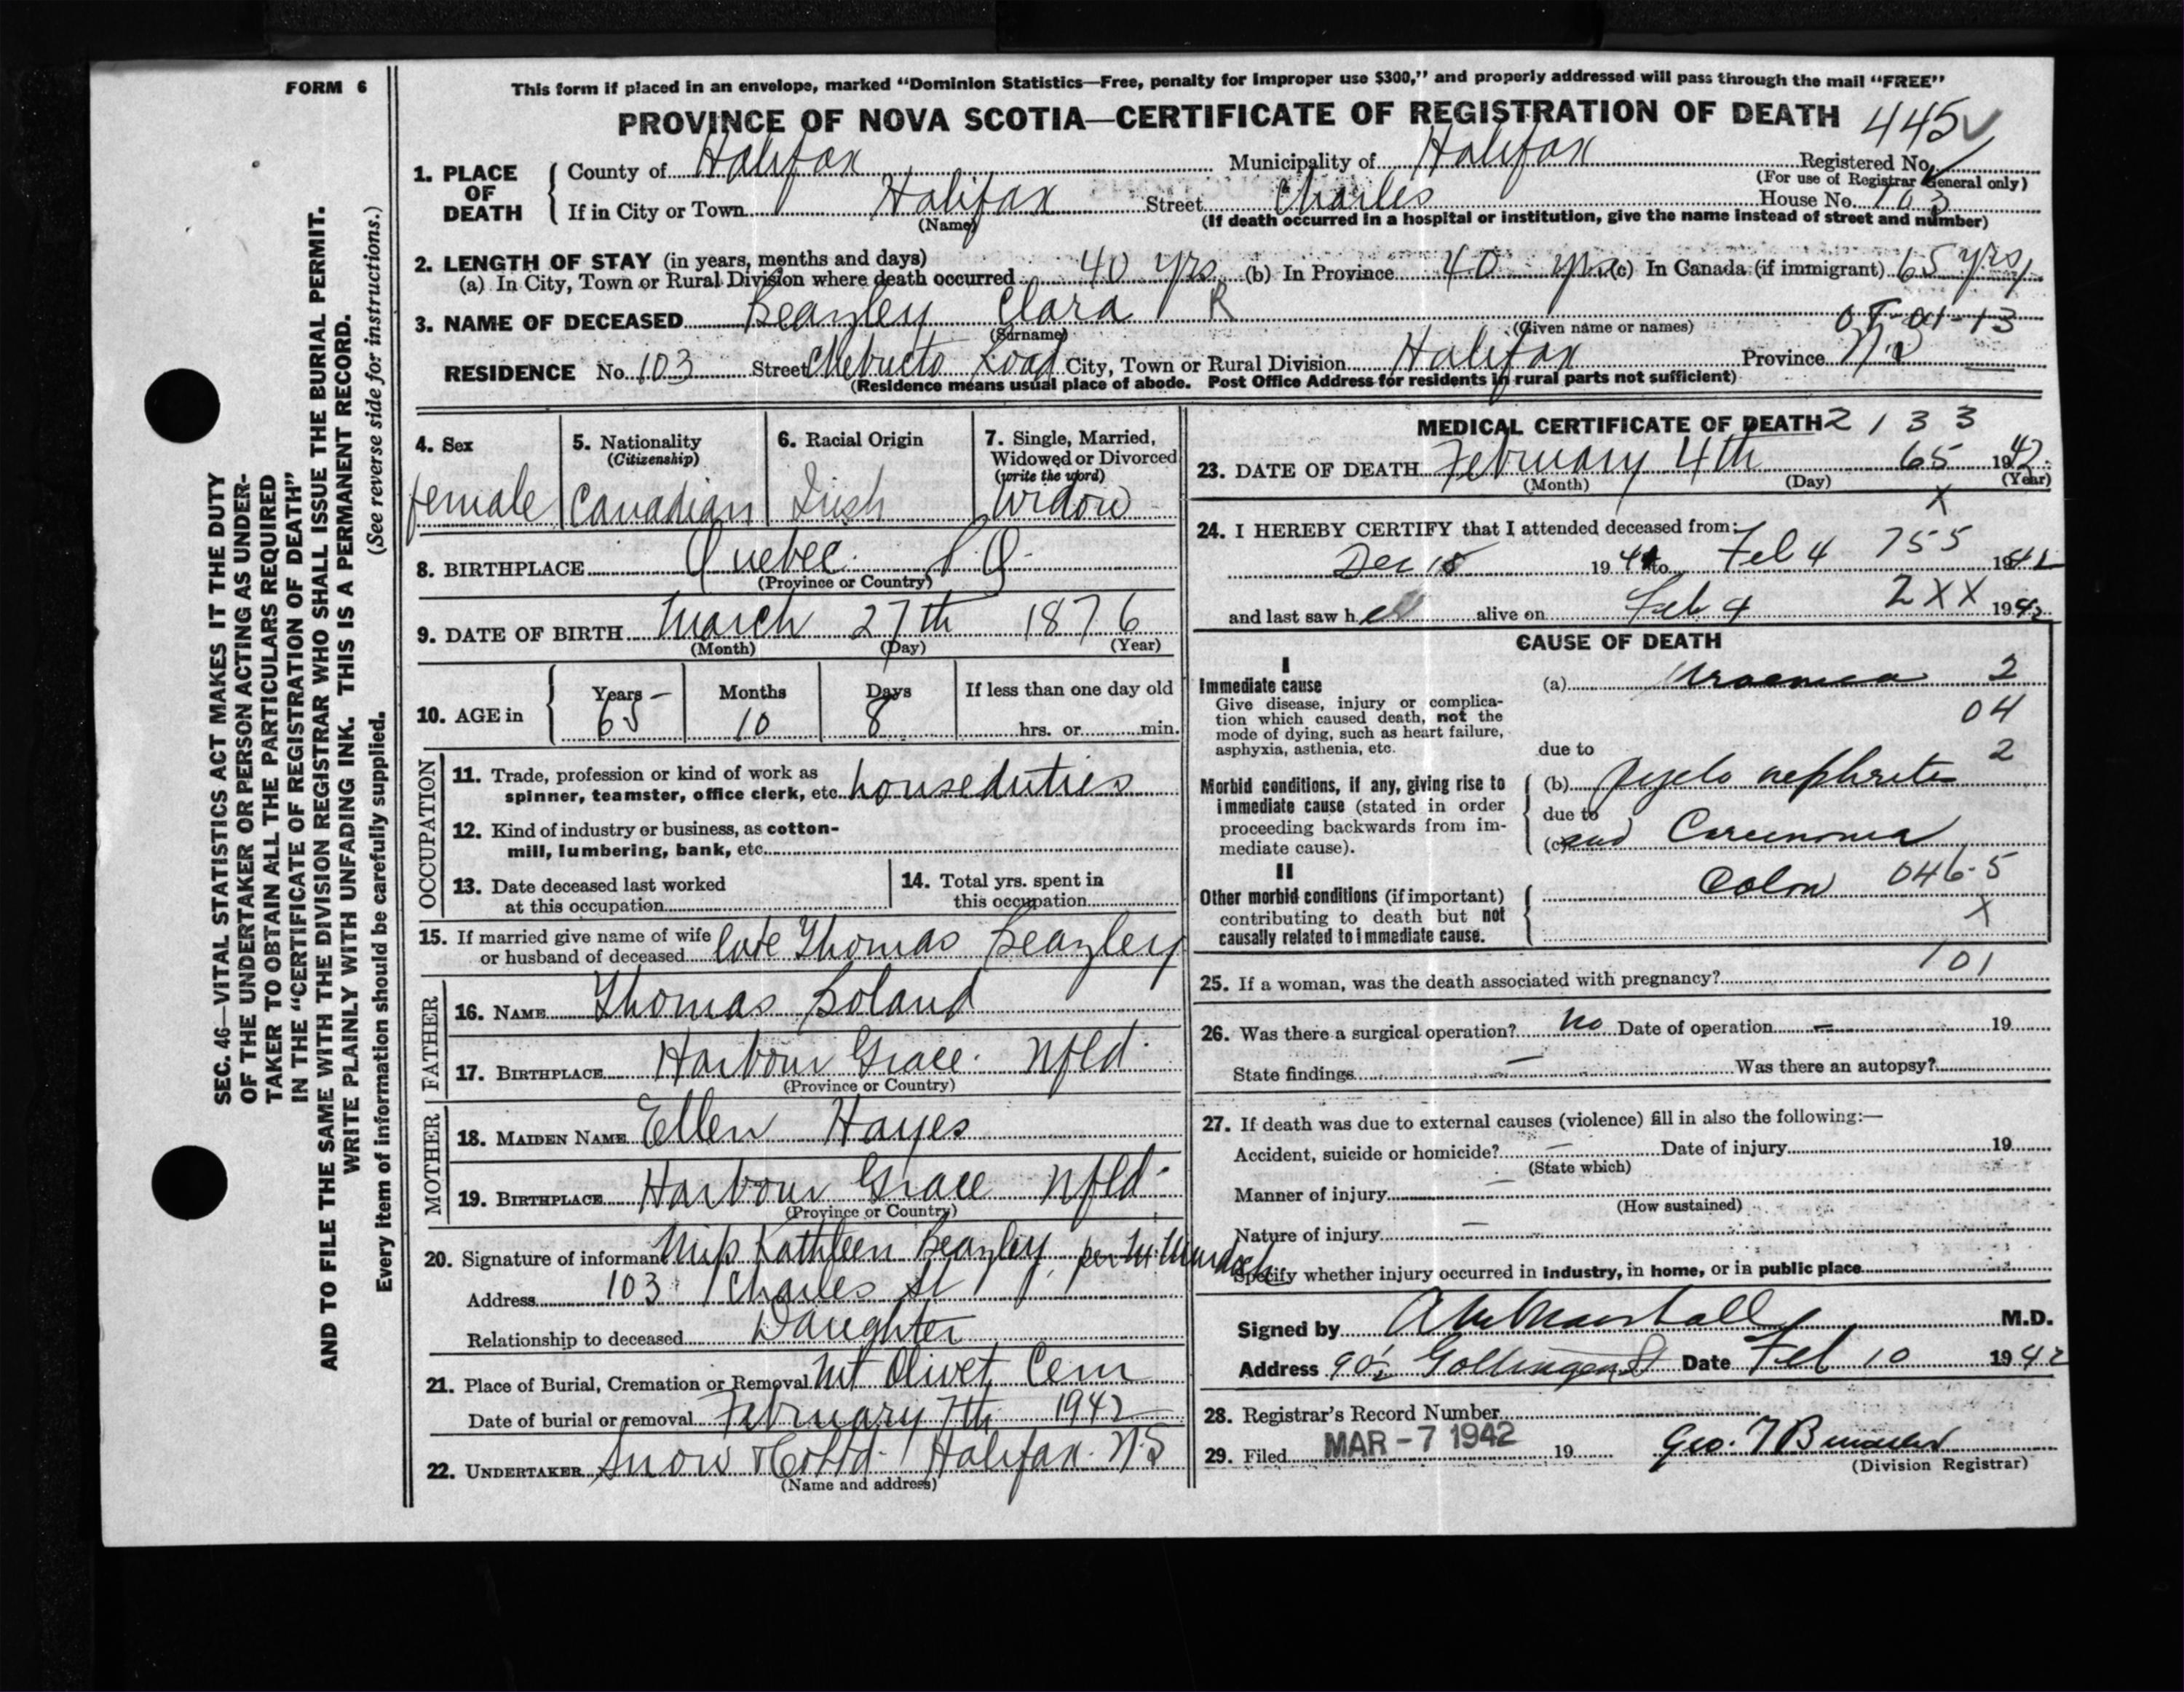 FORM 6
This form if placed in an envelope, marked “Dominion Statistics—Free, penalty for improper use $300,” and properly addressed will pass through the mail “FREE”
PROVINCE OF NOVA SCOTIA—CERTIFICATE OF REGISTRATION OF DEATH 445
1. PLACE OF DEATH County of Halifax Municipality of Halifax Registered No.
(For use of Registrar General only)
If in City or Town Halifax Street Charles House No. 103
(Name) (If death occurred in a hospital or institution, give the name instead of street and number)
2. LENGTH OF STAY (in years, months and days)
(a) In City, Town or Rural Division where death occurred 40 yrs (b) In Province 40 yrs (c) In Canada (if immigrant) 65 yrs
3. NAME OF DECEASED Beazley Clara R
(Surname) (Given name or names)
RESIDENCE No. 103 Street Chebucto Road City, Town or Rural Division Halifax Province N.S
(Residence means usual place of abode. Post Office Address for residents in rural parts not sufficient)
4. Sex
female
5. Nationality
(Citizenship)
Canadian
6. Racial Origin
Irish
7. Single, Married,
Widowed or Divorced
(write the word)
Widow
8. BIRTHPLACE Quebec P.Q.
(Province or Country)
9. DATE OF BIRTH March 27th 1876
(Month) (Day) (Year)
10. AGE in Years Months Days If less than one day old
65 10 8 hrs. or min.
OCCUPATION
11. Trade, profession or kind of work as
spinner, teamster, office clerk, etc. houseduties
12. Kind of industry or business, as cotton-
mill, lumbering, bank, etc.
13. Date deceased last worked
at this occupation
14. Total yrs. spent in
this occupation
15. If married give name of wife
or husband of deceased late Thomas Beazley
FATHER
16. NAME Thomas Boland
17. BIRTHPLACE Harbour Grace. Nfld.
(Province or Country)
MOTHER
18. MAIDEN NAME Ellen Hayes
19. BIRTHPLACE Harbour Grace Nfld.
(Province or Country)
20. Signature of informant Miss Kathleen Beazley, per M. Murdoch
Address 103 Charles St
Relationship to deceased Daughter
21. Place of Burial, Cremation or Removal Mt Olivet Cem
Date of burial or removal February 7th 1942
22. UNDERTAKER Snow & Co Ltd. Halifax. N.S
(Name and address)
MEDICAL CERTIFICATE OF DEATH 2133
23. DATE OF DEATH February 4th 65 1942
(Month) (Day) (Year)
X
24. I HEREBY CERTIFY that I attended deceased from:
Dec 15 1941 to Feb 4 755 1942
and last saw her alive on Feb 4 2XX 1942
CAUSE OF DEATH
I
Immediate cause
Give disease, injury or complica-
tion which caused death, not the
mode of dying, such as heart failure,
asphyxia, asthenia, etc.
(a) Uraemia 2
04
due to 2
Morbid conditions, if any, giving rise to
immediate cause (stated in order
proceeding backwards from im-
mediate cause).
(b) Pyelo nephritis
due to
(c) and Carcinoma
II
Other morbid conditions (if important)
contributing to death but not
causally related to immediate cause.
Colon 046.5
X
101
25. If a woman, was the death associated with pregnancy?
26. Was there a surgical operation? No Date of operation — 19
State findings — Was there an autopsy?
27. If death was due to external causes (violence) fill in also the following:—
Accident, suicide or homicide? — Date of injury 19
(State which)
Manner of injury —
(How sustained)
Nature of injury —
Specify whether injury occurred in industry, in home, or in public place
Signed by Marshall M.D.
Address Gottingen St Date Feb 10 1942
28. Registrar's Record Number
29. Filed MAR -7 1942 19 Geo.
(Division Registrar)
SEC. 46—VITAL STATISTICS ACT MAKES IT THE DUTY
OF THE UNDERTAKER OR PERSON ACTING AS UNDER-
TAKER TO OBTAIN ALL THE PARTICULARS REQUIRED
IN THE “CERTIFICATE OF REGISTRATION OF DEATH”
AND TO FILE THE SAME WITH THE DIVISION REGISTRAR WHO SHALL ISSUE THE BURIAL PERMIT.
WRITE PLAINLY WITH UNFADING INK. THIS IS A PERMANENT RECORD.
(See reverse side for instructions.)
Every item of information should be carefully supplied.